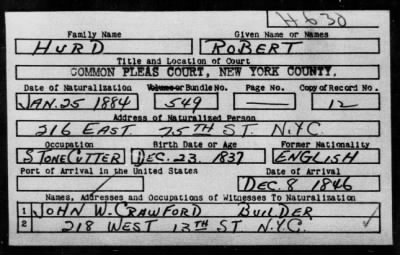 H630
Family Name Given Name or Names
HURD ROBERT
Title and Location of Court
COMMON PLEAS COURT, NEW YORK COUNTY.
Date of Naturalization Volume or Bundle No. Page No. Copy of Record No.
JAN. 25 1884 549 — 12
Address of Naturalized Person
216 EAST 75TH ST N.Y.C.
Occupation Birth Date or Age Former Nationality
STONECUTTER DEC. 23. 1837 ENGLISH
Port of Arrival in the United States Date of Arrival
DEC. 8 1846
Names, Addresses and Occupations of Witnesses To Naturalization
1 JOHN W. CRAWFORD BUILDER
2 218 WEST 13TH ST N.Y.C.